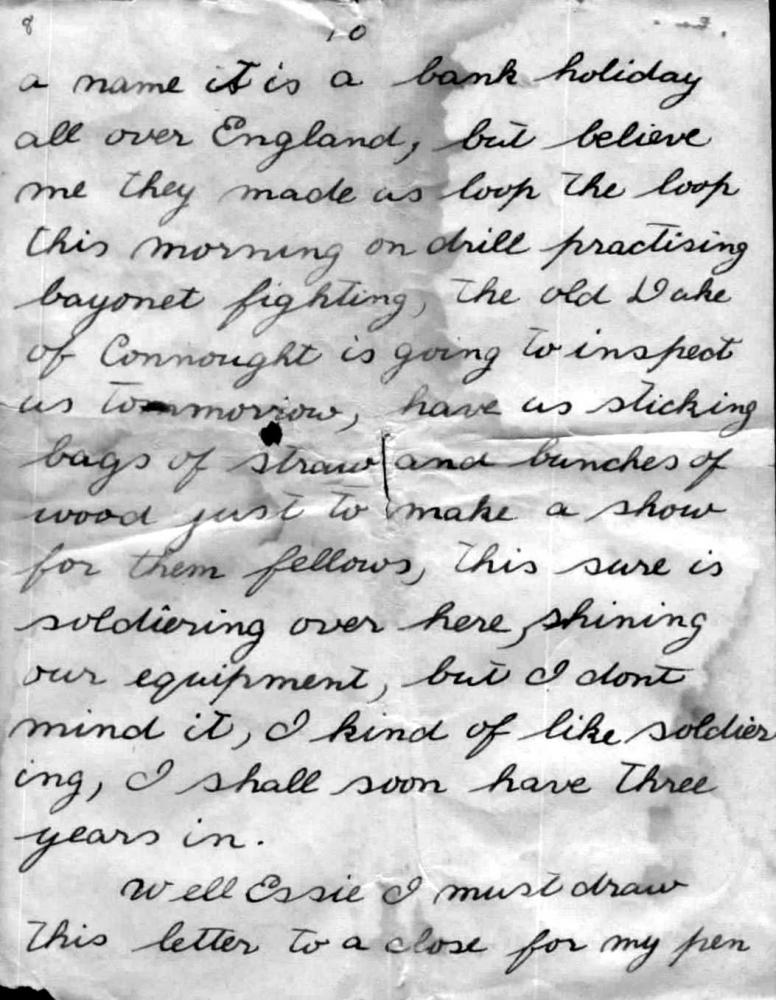 8 10
a name it is a bank holiday
all over England, but believe
me they made us loop the loop
this morning on drill practising
bayonet fighting, the old Duke
of Connought is going to inspect
us tommorrow, have us sticking
bags of straw and bunches of
wood just to make a show
for them fellows, this sure is
soldiering over here, shining
our equipment, but I dont
mind it, I kind of like soldier
ing, I shall soon have three
years in.
Well Essie I must draw
this letter to a close for my pen